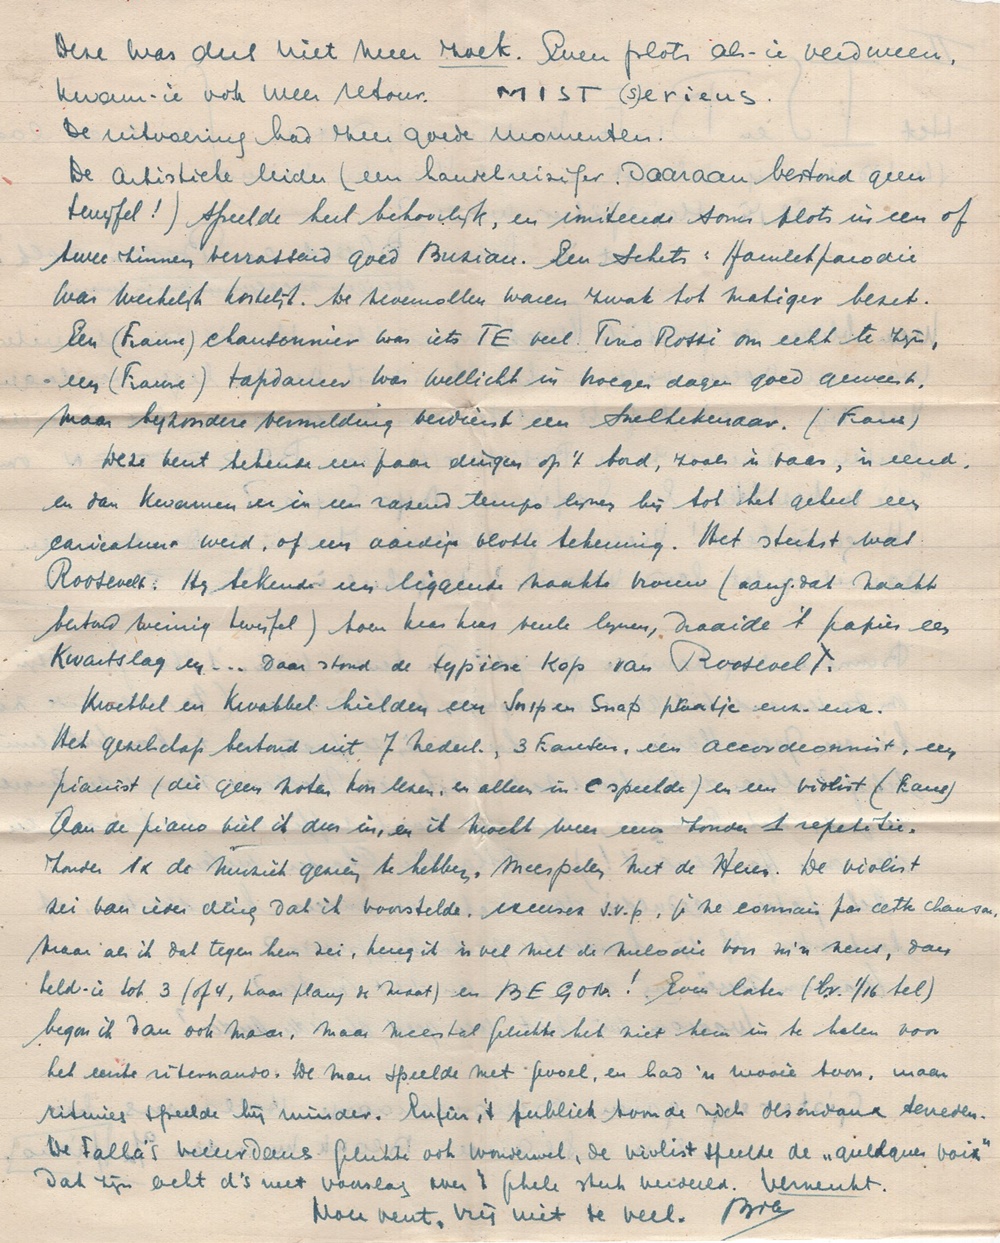 Deze was dus niet meer zoek. Even plots als-ie verdween,
kwam-ie ook weer retour. MIST (S)erieus.
De uitvoering had zeer goede momenten.
De artistieke leider (een handelsreiziger. Daaraan bestond geen
twijfel!) speelde heel behoorlijk, en imiteerde soms plots in een of
twee zinnen verrassend goed Buziau. Een schets: Hamletparodie
was werkelijk kostelijk. De rollen waren zwak tot matiger bezet.
Een (Frans) chansonnier was iets TE veel Tino Rossi om echt te zijn,
een (Franse) tapdanser was wellicht in vroeger dagen goed geweest,
maar bijzondere vermelding verdient een Sneltekenaar. (Frans)
Deze vent tekende een paar dingen op 't bord, zoals 'n vaas, 'n eend,
en dan kwamen er in een razend tempo lijnen bij tot het geheel een
caricatuur werd, of een aardige vlotte tekening. Het sterkst was
Roosevelt: Hij tekende een liggende naakte vrouw (aang. dat naakt
bestond weinig twijfel) toen kras kras lijnen, draaide 't papier een
kwartslag en... Daar stond de typische kop van Roosevelt.
Kwebbel en Kwabbel hielden een Snip en Snap praatje enz. enz.
Het gezelschap bestond uit 7 Nederl., 3 Fransen, een accordeonnist, een
pianist (die geen noten kon lezen, en alleen in C speelde) en een violist (Frans)
Aan de piano viel ik dus in, en ik mocht weer eens zonder 1 repetitie,
zonder 1x de muziek gezien te hebben, meespelen met de Heren. De violist
zei van ieder ding dat ik voorstelde, excusez s.v.p, je ne connais pas cette chanson,
maar als ik dat tegen hem zei, kreeg ik 'n vel met de melodie voor m'n neus, dan
telde-ie tot 3 (of 4, naar plang de maat) en BEGON! Even later (br. 1/16 tel)
begon ik dan ook maar, maar meestal gelukte het niet hem in te halen voor
het eerste riternando. De man speelde met gevoel, en had 'n mooie toon, maar
ritmies speelde hij minder. Enfin, 't publiek toonde zich desondanks tevreden.
De Falla's vuurdans gelukte ook wonderwel, de violist speelde de "quelques voix"
Dat zijn acht d's met voorslag over 't gehele stuk verdeeld. Vernucht.
Nou vent, vrij niet te veel. Bob